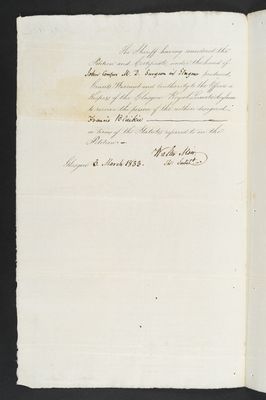 The Sheriff having considered the
Petition and Certificate under the hand of
John Couper M. D. Surgeon in Glasgow produced,
Grants Warrant and Authority to the Governor
Keepers of the Glasgow Royal Lunatic Asylum
to receive the person of the within designed
Francis Blaikie
in terms of the Statutes referred to in the
Petition.
Glasgow 2 March 1833.